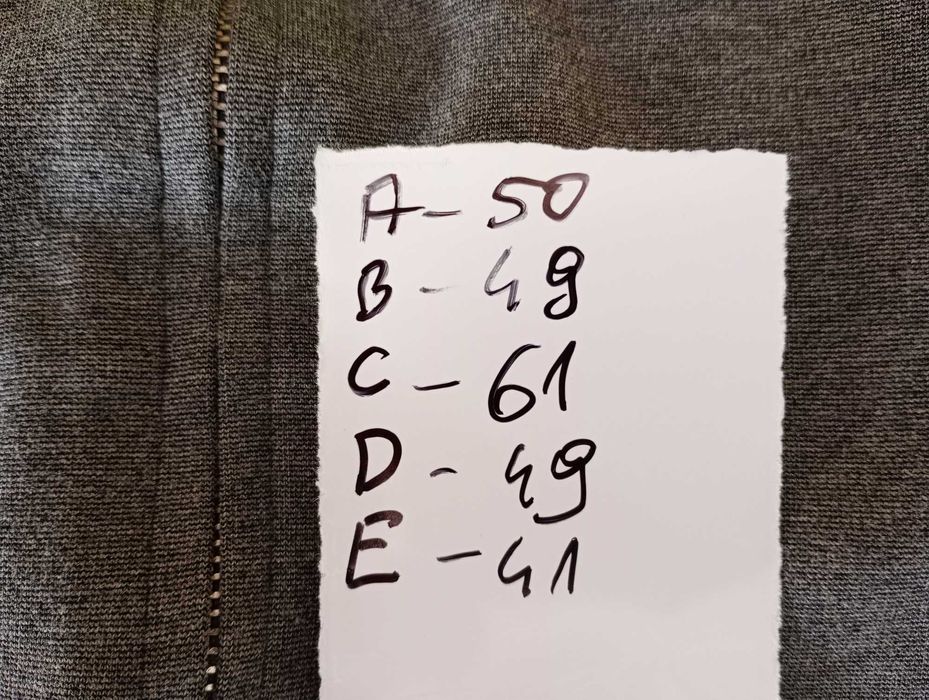 A - 50
B - 49
C - 61
D - 49
E - 41